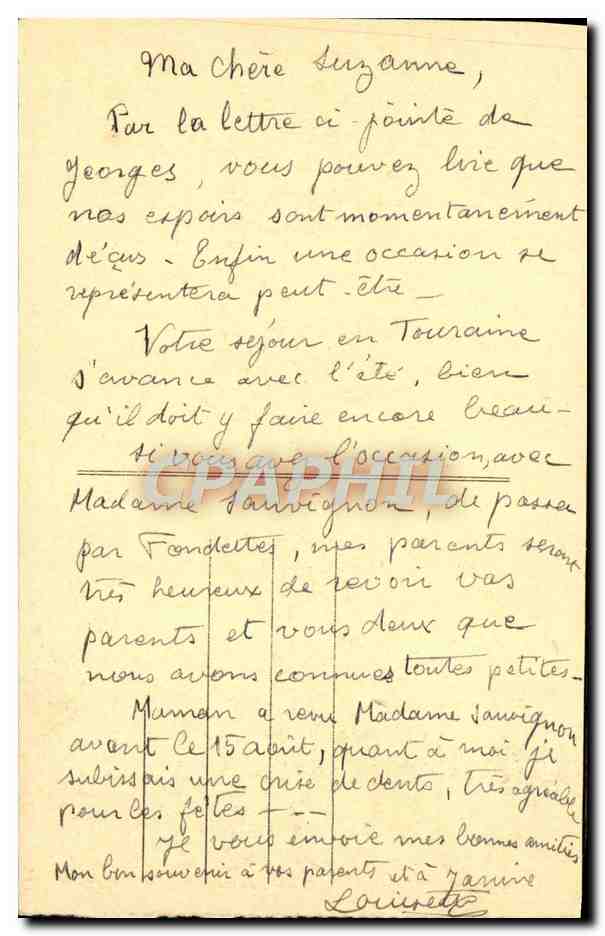 Ma chère Suzanne,
Par la lettre ci-jointe de
Georges, vous pouvez lire que
nos espoirs sont momentanément
déçus - Enfin une occasion se
représentera peut-être -
Votre séjour en Touraine
s'avance avec l'été, bien
qu'il doit y faire encore beau -
si vous avez l'occasion, avec
CPAPHIL
Madame Sauvignon, de passer
par Fondettes, mes parents seront
très heureux de revoir vos
parents et vous deux que
nous avons connues toutes petites -
Maman a revu Madame Sauvignon
avant le 15 août, quant à moi je
subissais une crise de dents, très agréable
pour les fêtes - - -
Je vous envoie mes bonnes amitiés
Mon bon souvenir à vos parents et à Janine
Louisette